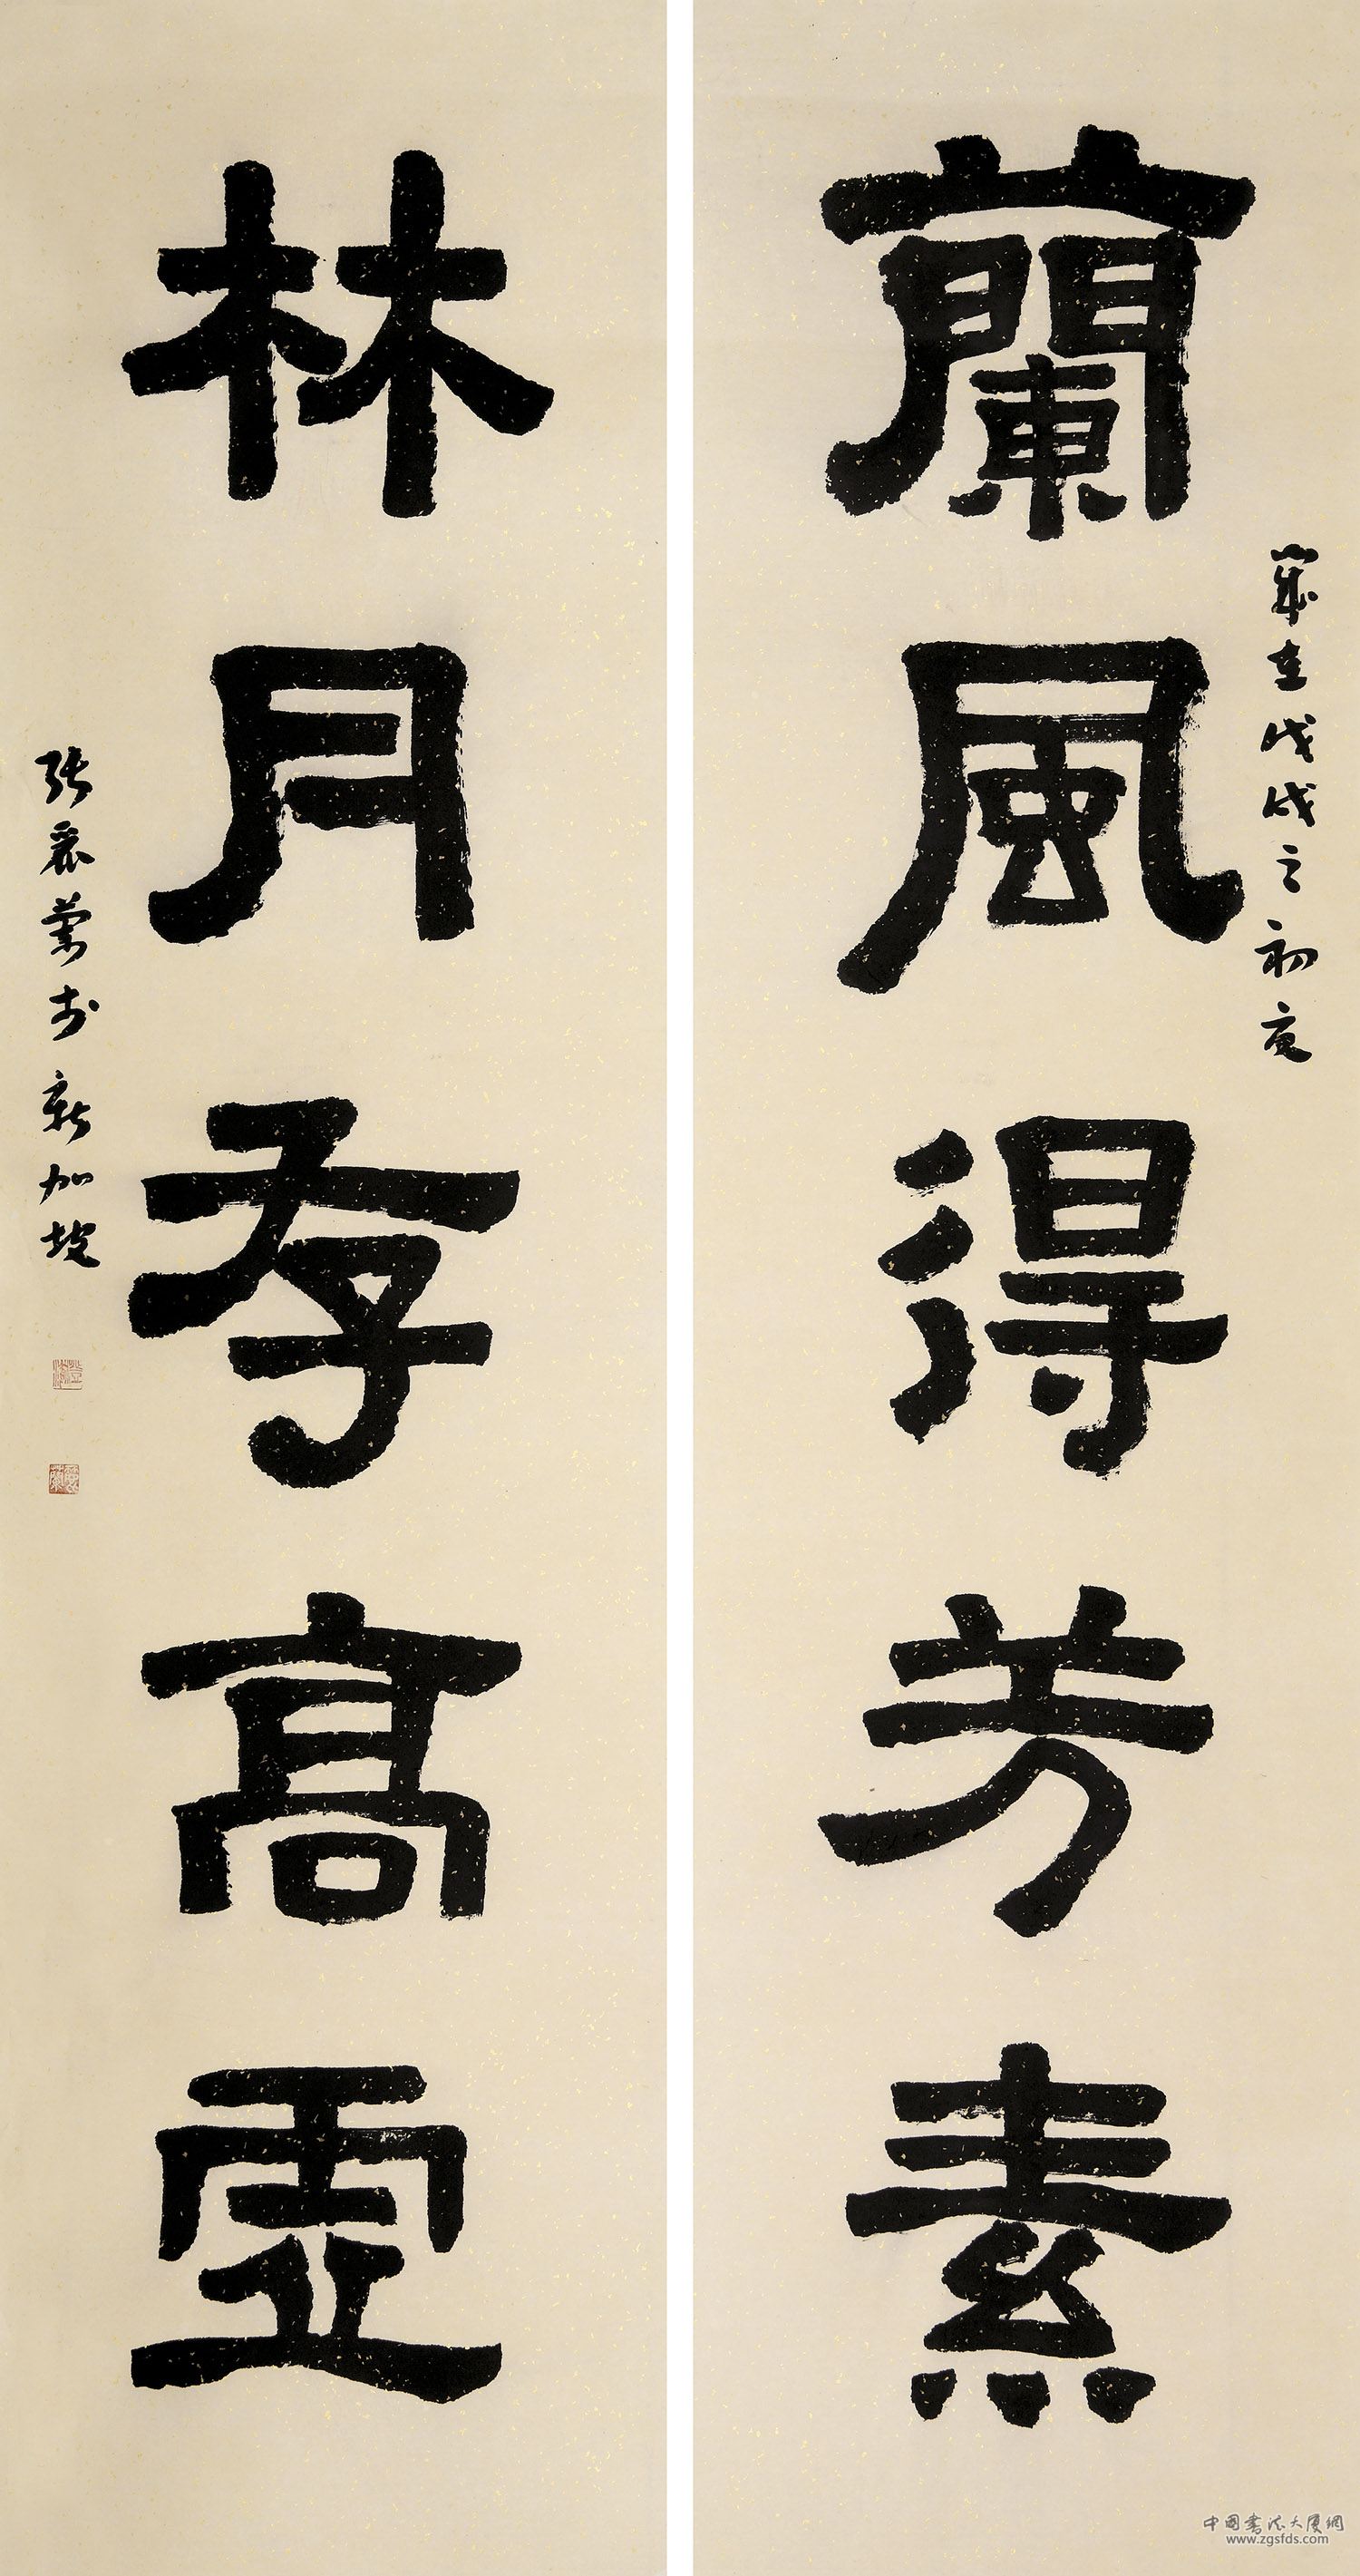 蘭風得芳素
歲在戊戌之初夏
林月存高虛
張
於新加坡
中国書法大厦網
www.zgsfds.com